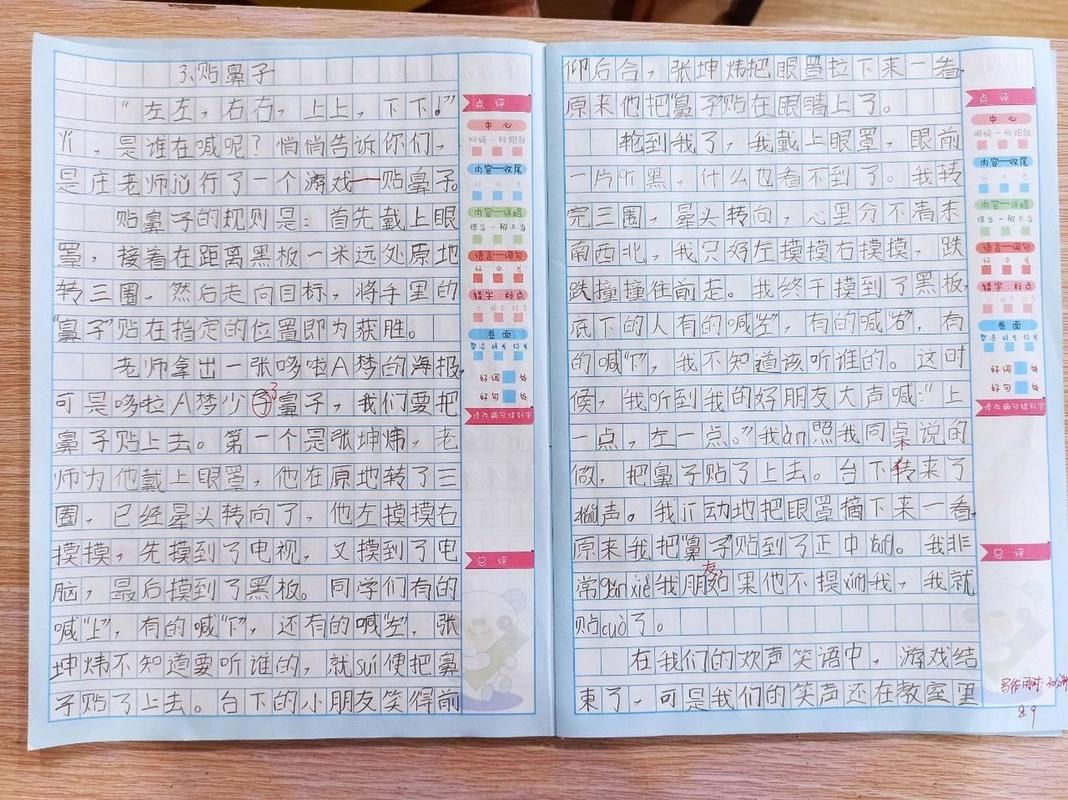 3.贴鼻子
“左左，右右，上上，下下！”
，是谁在喊呢？悄悄告诉你们，
是庄老师进行了一个游戏——贴鼻子。
贴鼻子的规则是：首先戴上眼
罩，接着在距离黑板一米远处原地
转三圈，然后走向目标，将手里的
“鼻子”贴在指定的位置即为获胜。
老师拿出一张哆啦A梦的海报，
可是哆拉A梦少了鼻子，我们要把
鼻子贴上去。第一个是张坤炜，老
师为他戴上眼罩，他在原地转了三
圈，已经晕头转向了，他左摸摸右
摸摸，先摸到了电视，又摸到了电
脑，最后摸到了黑板。同学们有的
喊“上”，有的喊“下”，还有的喊“左”，张
坤炜不知道要听谁的，就suí便把鼻
子贴了上去。台下的小朋友笑得前
点评
中心
明确 一般 跑题
内容—收尾
好 中 差
内容—详略
得当 一般 不当
语言—词句
好 中 差
错字 标点
卷面
整洁 较差 较差
好词 处
好句 处
修改病句错别字
总评
仰后合，张坤炜把眼罩拉下来一看，
原来他把“鼻子”贴在眼睛上了。
轮到我了，我戴上眼罩，眼前
一片黑，什么也看不到了。我转
完三圈，晕头转向，心里分不清东
南西北，我只好左摸摸右摸摸，跌
跌撞撞住前走。我终于摸到了黑板，
底下的人有的喊“左”，有的喊“右”，有
的喊“下”，我不知道该听谁的。这时
候，我听到我的好朋友大声喊：“上
一点，左一点。”我àn照我同桌说的
做，把鼻子贴了上去。台下转来了
声。我动地把眼罩摘下来一看，
原来我把“鼻子”贴到了正中。我非
常gǎn xiè我朋友如果他不提xǐng我，我就
贴cuò了。
在我们的欢声笑语中，游戏结
束了，可是我们的笑声还在教室里
点评
中心
明确 一般 跑题
内容—收尾
好 中 差
内容—详略
得当 一般 不当
语言—词句
好 中 差
错字 标点
卷面
整洁 较差 较差
好词 处
好句 处
修改病句错别字
总评
写作用时：30分钟
8.9